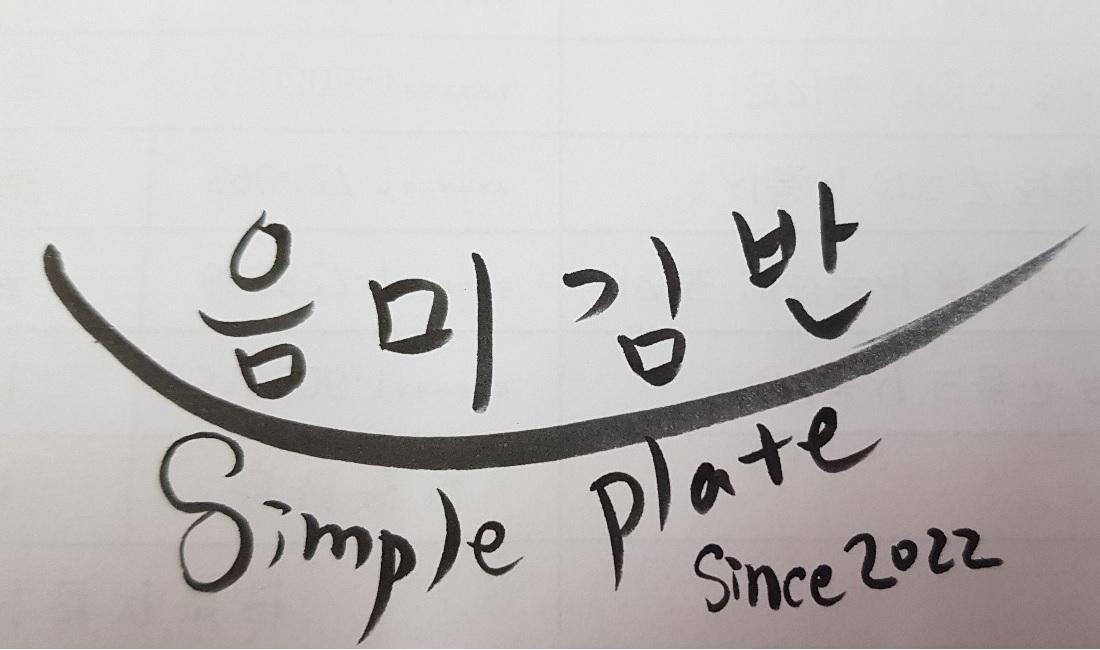 음미김반
Simple plate
Since 2022